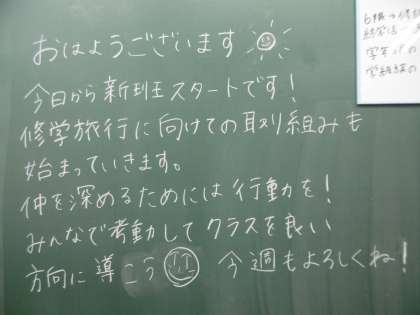 おはようございます
今日から新班スタートです!
修学旅行に向けての取り組みも
始まっていきます。
仲を深めるためには行動を!
みんなで考動してクラスを良い
方向に導こう 今週もよろしくね!